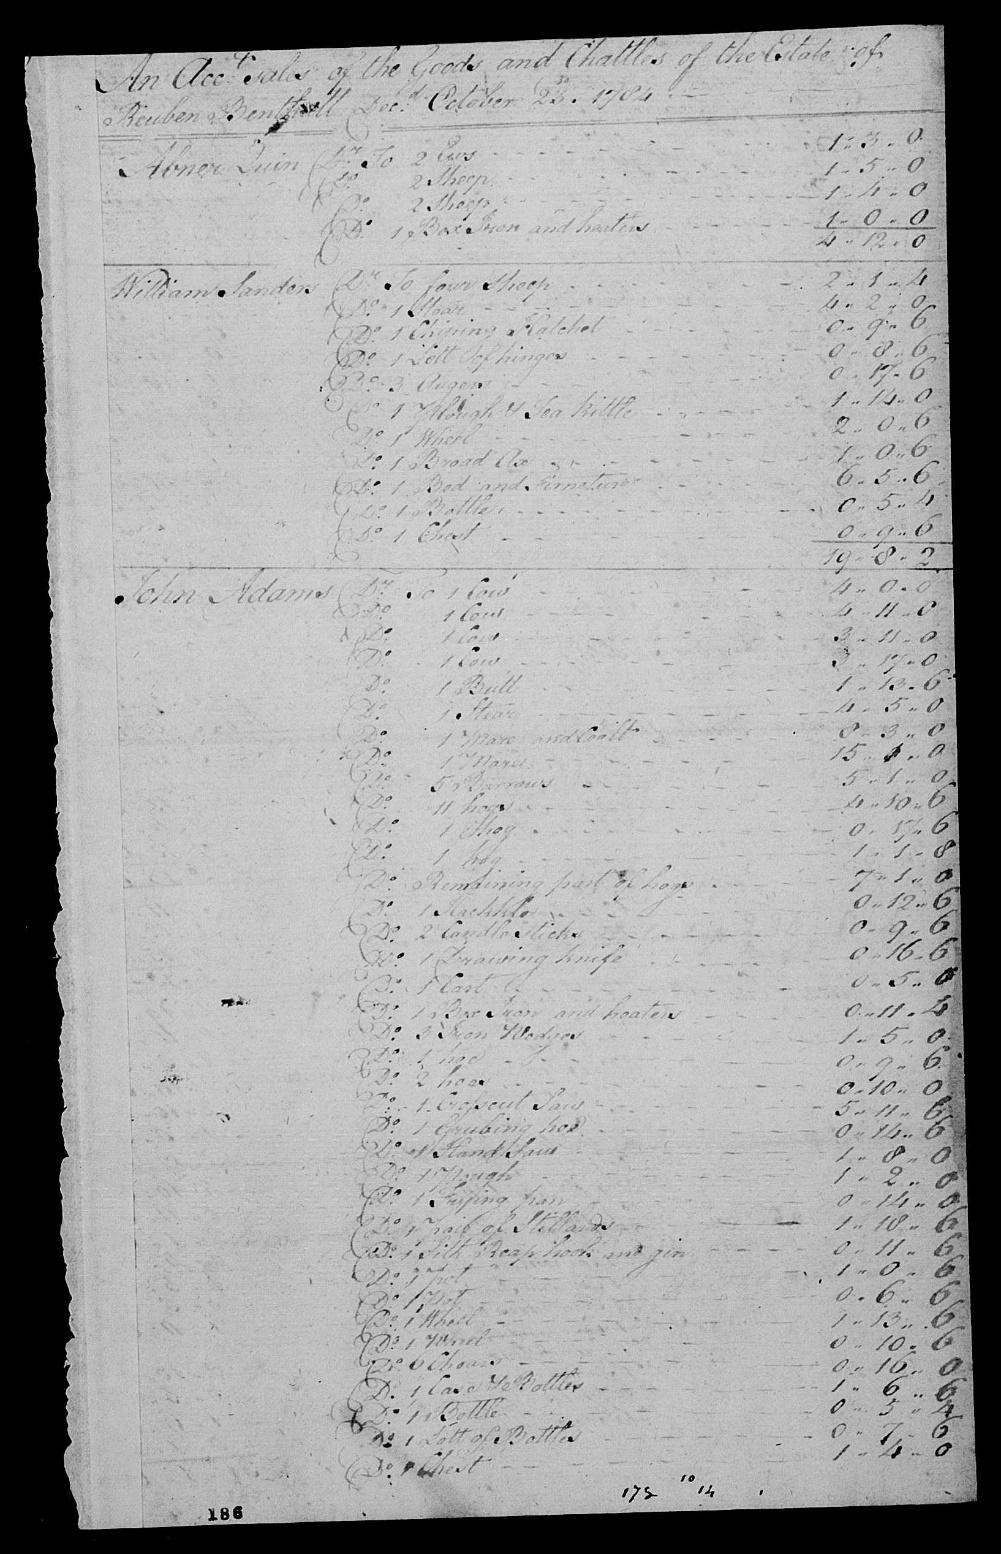 An Acct sales of the Goods and Chattles of the Estate of
Reuben Benthall Decd October 23d 1784
Abner Quin Dr To 2 Ews 1 - 3 - 0
Do 2 Sheep 1 - 5 - 0
Do 2 Sheep 1 - 4 - 0
Do 1 Box Iron and heaters 1 - 0 - 0
4 - 12 - 0
William Sanders Dr To four Sheep 2 - 1 - 4
Do 1 4 - 2 - 0
Do 1 0 - 9 - 6
Do 1 Lott of hinges 0 - 8 - 6
Do 3 Augers 0 - 17 - 6
Do 1 Plough & Tea kittle 1 - 14 - 0
Do 1 Wheel 2 - 0 - 6
Do 1 Broad Ax 1 - 0 - 6
Do 1 Bed and Firniture 6 - 5 - 6
Do 1 Bottle 0 - 5 - 4
Do 1 Chest 0 - 9 - 6
19 - 8 - 2
John Adams Dr To 1 Cow 4 - 0 - 0
Do 1 Cow 4 - 11 - 0
Do 1 Cow 3 - 11 - 0
Do 1 Cow 3 - 17 - 0
Do 1 Bull 1 - 13 - 6
Do 1 Stear 4 - 5 - 0
Do 1 Mare and Coalt 8 - 3 - 0
Do 1 Mare 15 - 1 - 0
Do 5 Barrows 5 - 1 - 0
Do 11 hogs 4 - 10 - 6
Do 1 Shog 0 - 17 - 6
Do 1 hog 1 - 1 - 8
Do Remaining part of hogs 7 - 1 - 0
Do 1 0 - 12 - 6
Do 2 Candle Sticks 0 - 9 - 6
Do 1 Drawing knife 0 - 16 - 6
Do 1 Cart 0 - 5 - 0
Do 1 Box Iron and heaters 0 - 11 - 4
Do 3 Iron Wedges 1 - 5 - 0
Do 1 hoe 0 - 9 - 6
Do 2 hoes 0 - 10 - 0
Do 1 Crosscut Saw 5 - 11 - 6
Do 1 Grubing hoe 0 - 14 - 6
Do 1 Hand Saw 1 - 8 - 0
Do 1 Plough 1 - 2 - 0
Do 1 Frying pan 0 - 14 - 0
Do 1 Pair of Stillards 1 - 18 - 6
Do 1 Reap hook and gin 0 - 11 - 6
Do 1 pot 1 - 0 - 6
Do 1 Pot 0 - 6 - 6
Do 1 Wheel 1 - 13 - 6
Do 1 0 - 10 - 6
Do 6 Chears 0 - 16 - 0
Do 1 Case & Bottles 1 - 6 - 6
Do 1 Bottle 0 - 5 - 4
Do 1 Lott of Bottles 0 - 7 - 6
Do 1 Chest 1 - 4 - 0
10 14
186